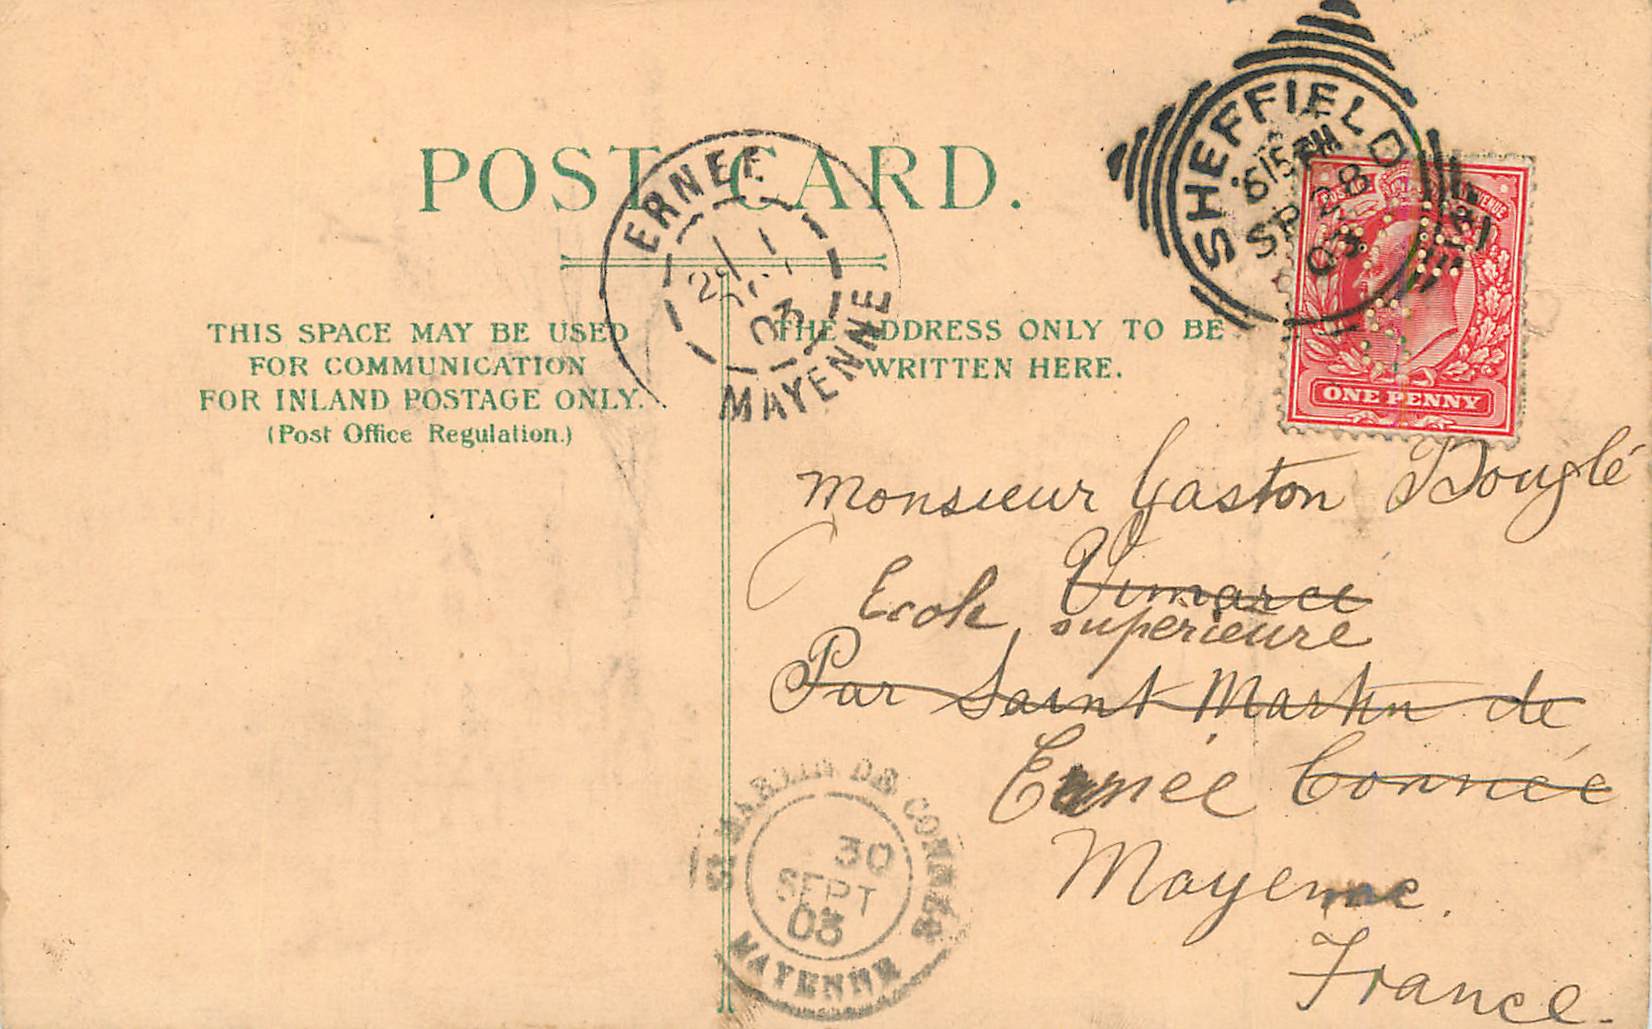 POST CARD.
THIS SPACE MAY BE USED
FOR COMMUNICATION
FOR INLAND POSTAGE ONLY.
(Post Office Regulation.)
THE ADDRESS ONLY TO BE
WRITTEN HERE.
ERNEE
03
MAYENNE
SHEFFIELD
615 PM
SP 28
03
ONE PENNY
Monsieur Gaston Bouglé
Vimarcé
Ecole supérieure
Par Saint Martin de
Ernée Connée
Mayenne.
France.
ST MARTIN DE CONNEE
30
SEPT
03
MAYENNE